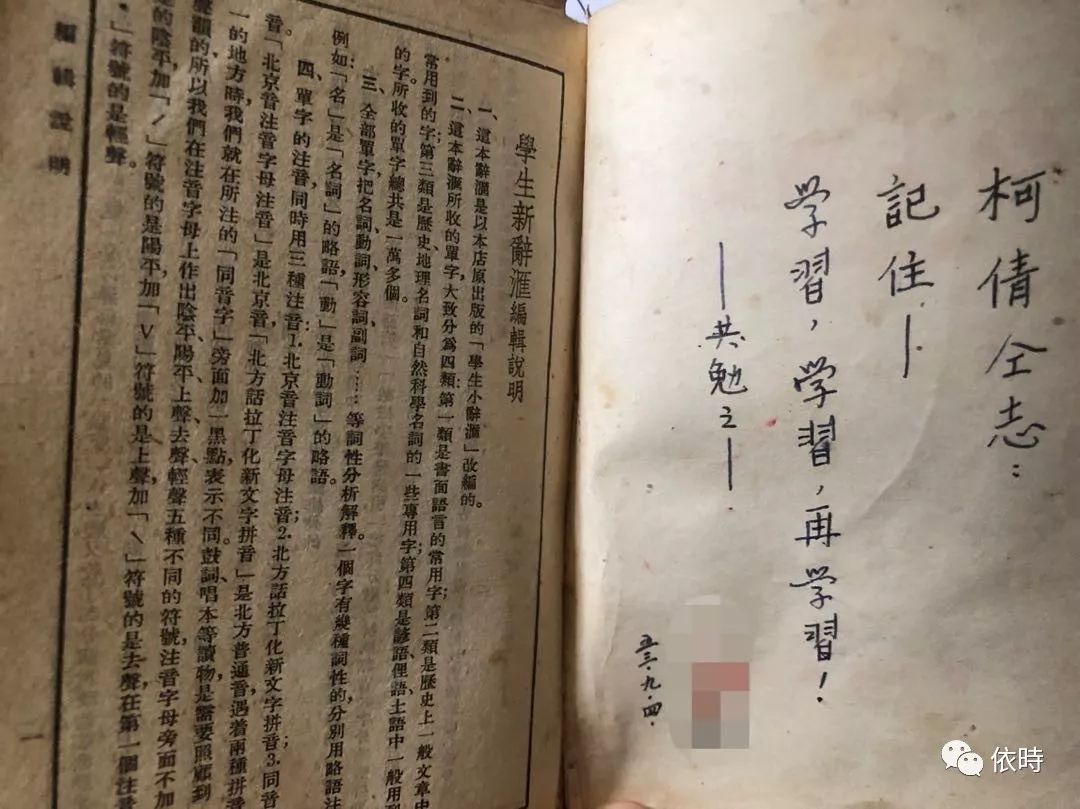 柯倩仝志：
記住—
学習，学習，再学習！
—共勉之—
五三·九·四·
學生新辭滙編輯說明
一、這本辭滙是以本店原出版的「學生小辭滙」改編的。
二、這本辭滙所收的單字大致分爲四類：第一類是書面語言的常用字；第二類是歷史上一般文章中
常用到的字；第三類是歷史、地理名詞和自然科學名詞的一些專用字；第四類是諺語、俚語、土語中一般用到
的字。所收的單字總共是一萬多個。
三、全部單字把名詞、動詞、形容詞、副詞……等詞性分析解釋。一個字有幾種詞性的分別用略語注
例如：「名」是「名詞」的略語，「動」是「動詞」的略語。
四、單字的注音，同時用三種注音：1.北京音注音字母注音；2.北方話拉丁化新文字拼音；3.同音
音。「北京音注音字母注音」是北京音，「北方話拉丁化新文字拼音」是北方普通音，遇着兩種拼音
一的地方時我們就在所注的「同音字」旁面加一黑點表示不同。鼓詞、唱本等讀物是需要照顧到
聲韻的，所以我們在注音字母上作出陰平、陽平、上聲、去聲、輕聲五種不同的符號，注音字母旁面不加
的陰平，加「ˊ」符號的是陽平，加「V」符號的是上聲，加「ˋ」符號的是去聲，在第一個注音
「·」符號的是輕聲。
編輯說明
一
依時